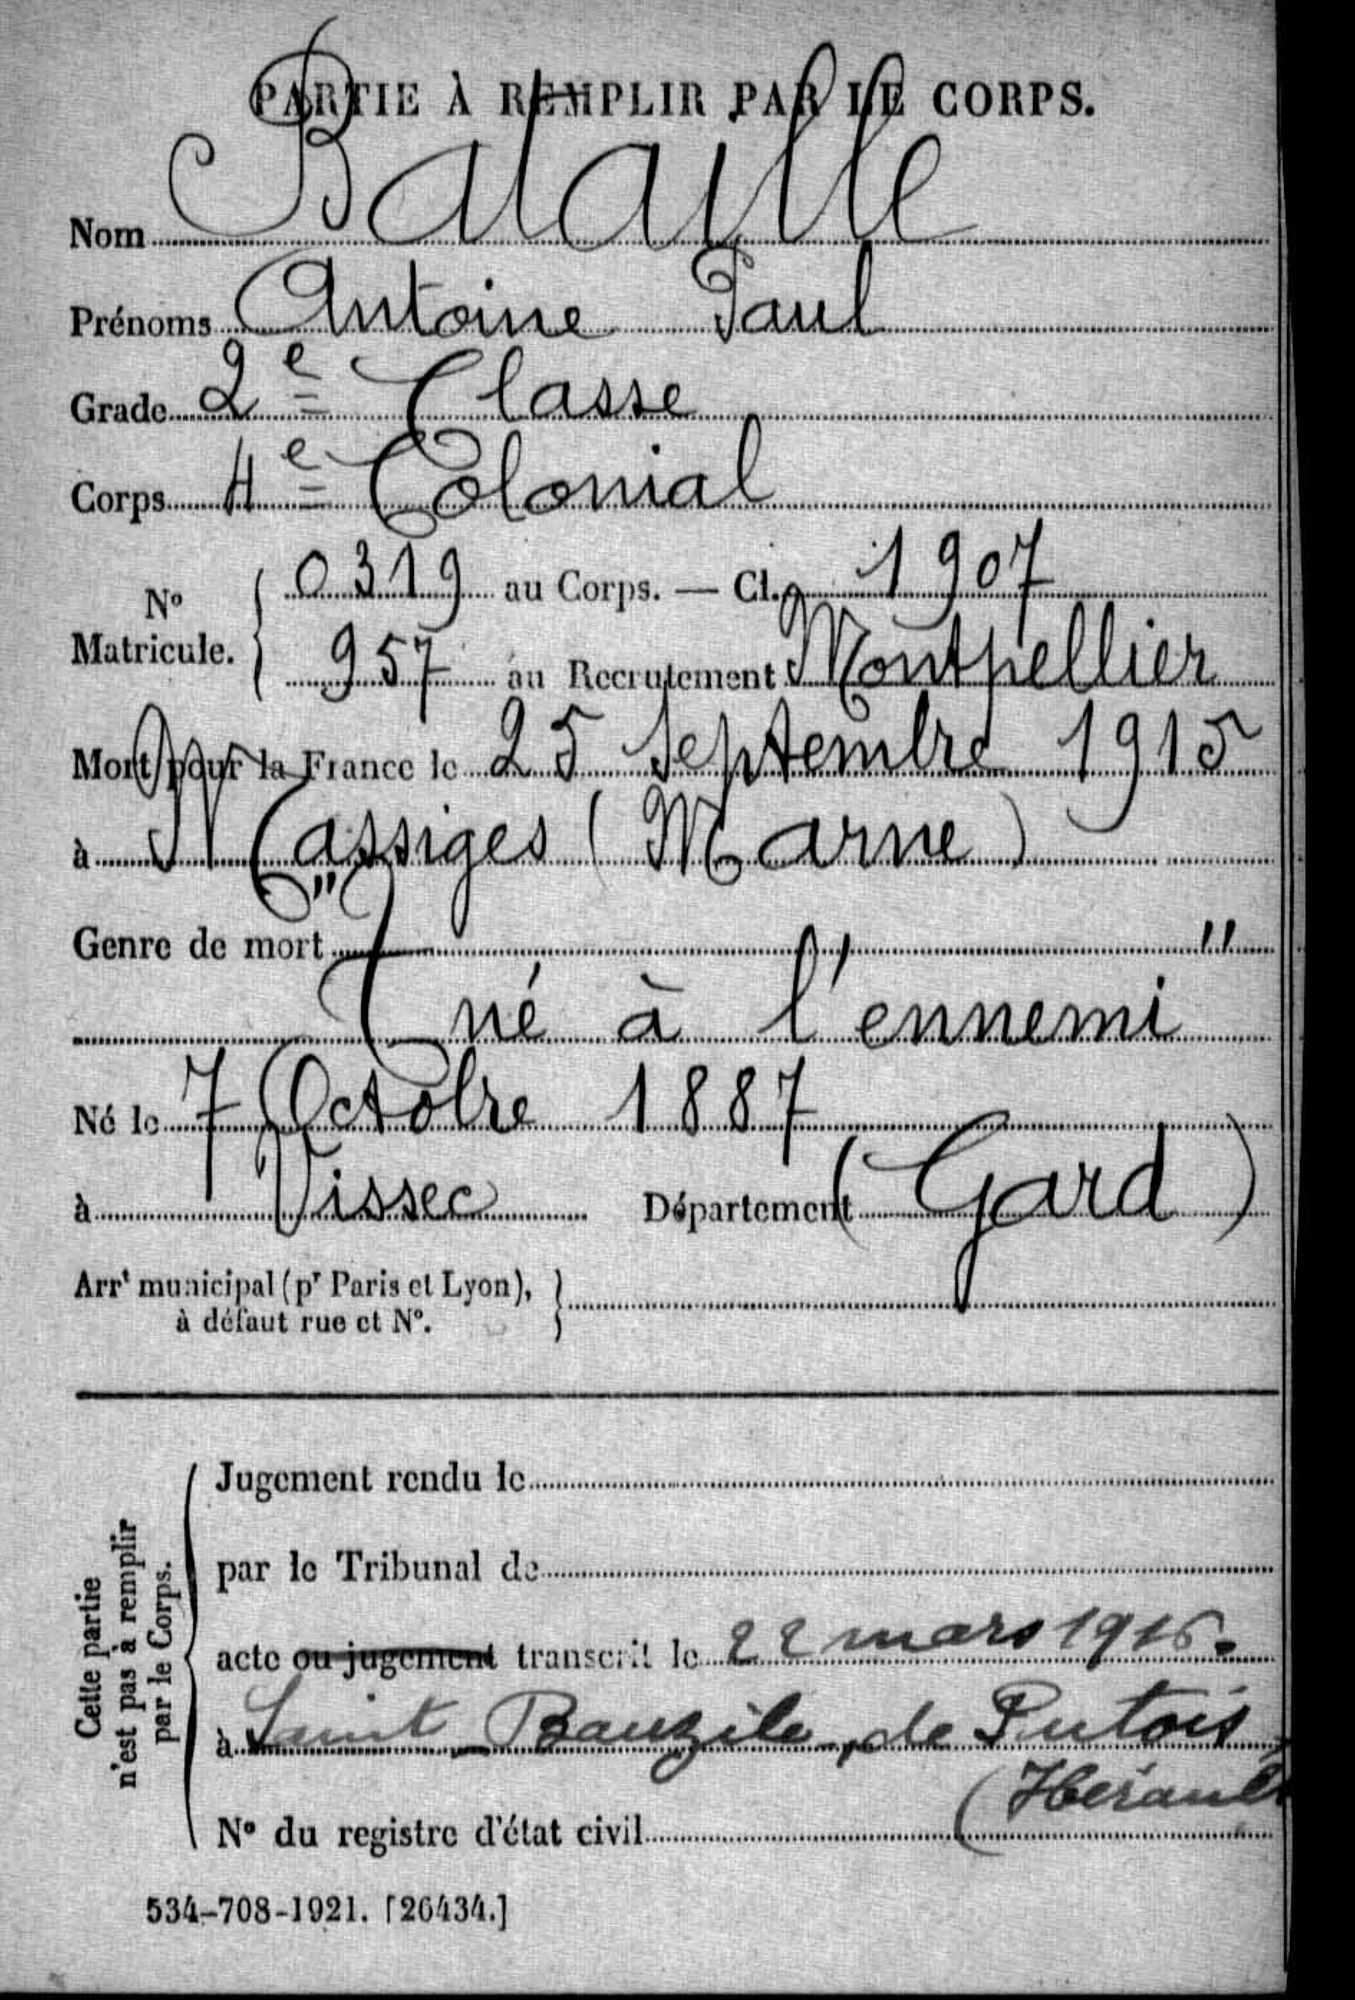 PARTIE À REMPLIR PAR LE CORPS.
Nom Bataille
Prénoms Antoine Paul
Grade 2e Classe
Corps 4e Colonial
No Matricule. { 0319 au Corps. — Cl. 1907
957 au Recrutement Montpellier
Mort pour la France le 25 Septembre 1915
à Massiges (Marne)
Genre de mort " "
Tué à l'ennemi
Né le 7 Octobre 1887
à Vissec Département (Gard)
Arrt municipal (pr Paris et Lyon), }
à défaut rue et No.
Cette partie
n'est pas à remplir
par le Corps.
Jugement rendu le
par le Tribunal de
acte ou jugement transcrit le 22 mars 1916.
à Saint-Bauzile, de Putois
(Hérault
No du registre d'état civil
534-708-1921. [26434.]